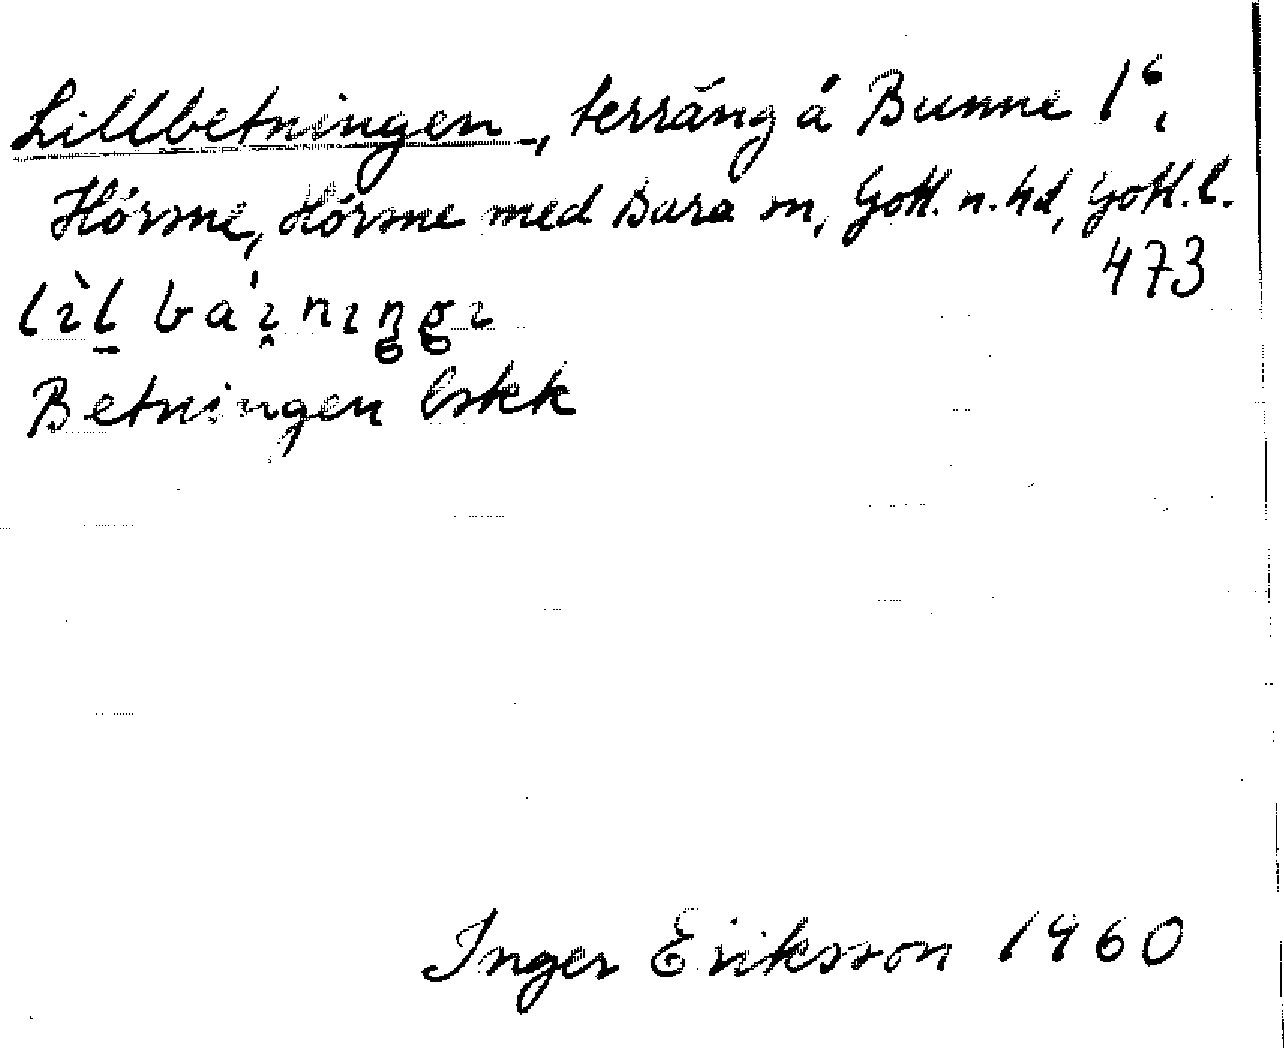 Lillbetningen, terräng å Bunne 1⁶,
Hörsne, Hörsne med Bara sn, Gotl. n. hd, Gotl. l.
473
Betningen Eskk
Inger Eriksson 1960